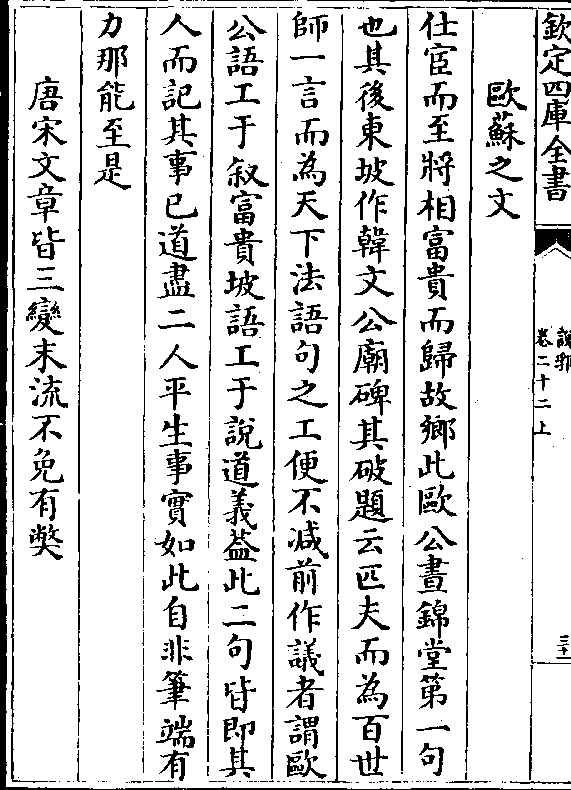 欽定四庫全書
說郛
卷二十二上
三十一
歐蘇之文
仕宦而至將相富貴而歸故鄉此歐公晝錦堂第一句
也其後東坡作韓文公廟碑其破題云匹夫而為百世
師一言而為天下法語句之工便不減前作議者謂歐
公語工于叙富貴坡語工于說道義葢此二句皆即其
人而記其事已道盡二人平生事實如此自非筆端有
力那能至是
唐宋文章皆三變末流不免有弊